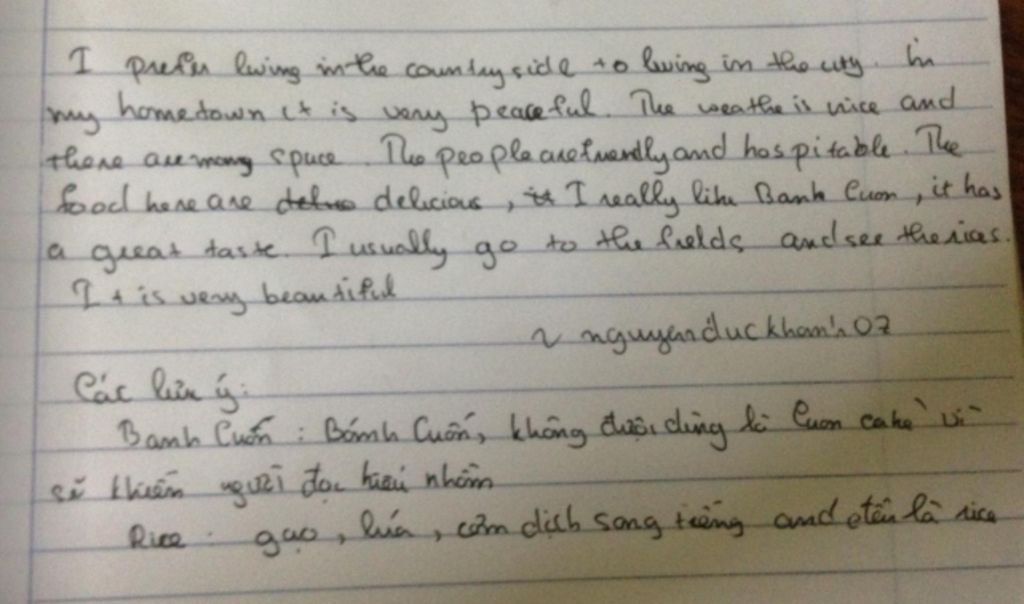 I prefer living in the countryside to living in the city. In
my hometown it is very peaceful. The weathe is nice and
there are many space. The people are friendly and hospitable. The
food here are delicious, I really like Banh Cuon, it has
a great taste. I usually go to the fields and see the rices.
It is very beautiful
~ nguyenduckhanh07
Các lưu ý:
Banh Cuốn: Bánh Cuốn, không được dùng là Cuon cake vì
sẽ khiến người đọc hiểu nhầm
Rice: gạo, lúa, cơm dịch sang tiếng and đều là rice